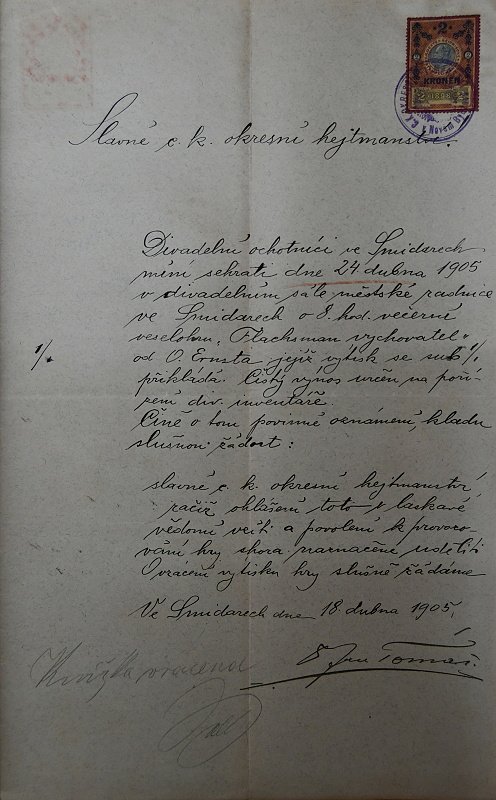 2
KRONEN
Slavné c. k. okresní hejtmanství.
Divadelní ochotníci ve Smidarech
míní sehráti dne 24 dubna 1905
v divadelním sále městské radnice
ve Smidarech o 8. hod. večerní
veselohru „Flachsman vychovatel“
od O. Ernsta jejíž výtisk se sub 1/.
1/.
přikládá. Čistý výnos určen na poří-
zení div. inventáře.
Číně o tom povinné oznámení kladu
slušnou žádost:
slavné c. k. okresní hejtmanství
račiž ohlášení toto v laskavé
vědomí vzíti a povolení k provozo-
vání hry shora naznačené uděliti
O vrácení výtisku hry slušně žádáme
Ve Smidarech dne 18. dubna 1905.
Jan Tomáš
Knížka vrácena